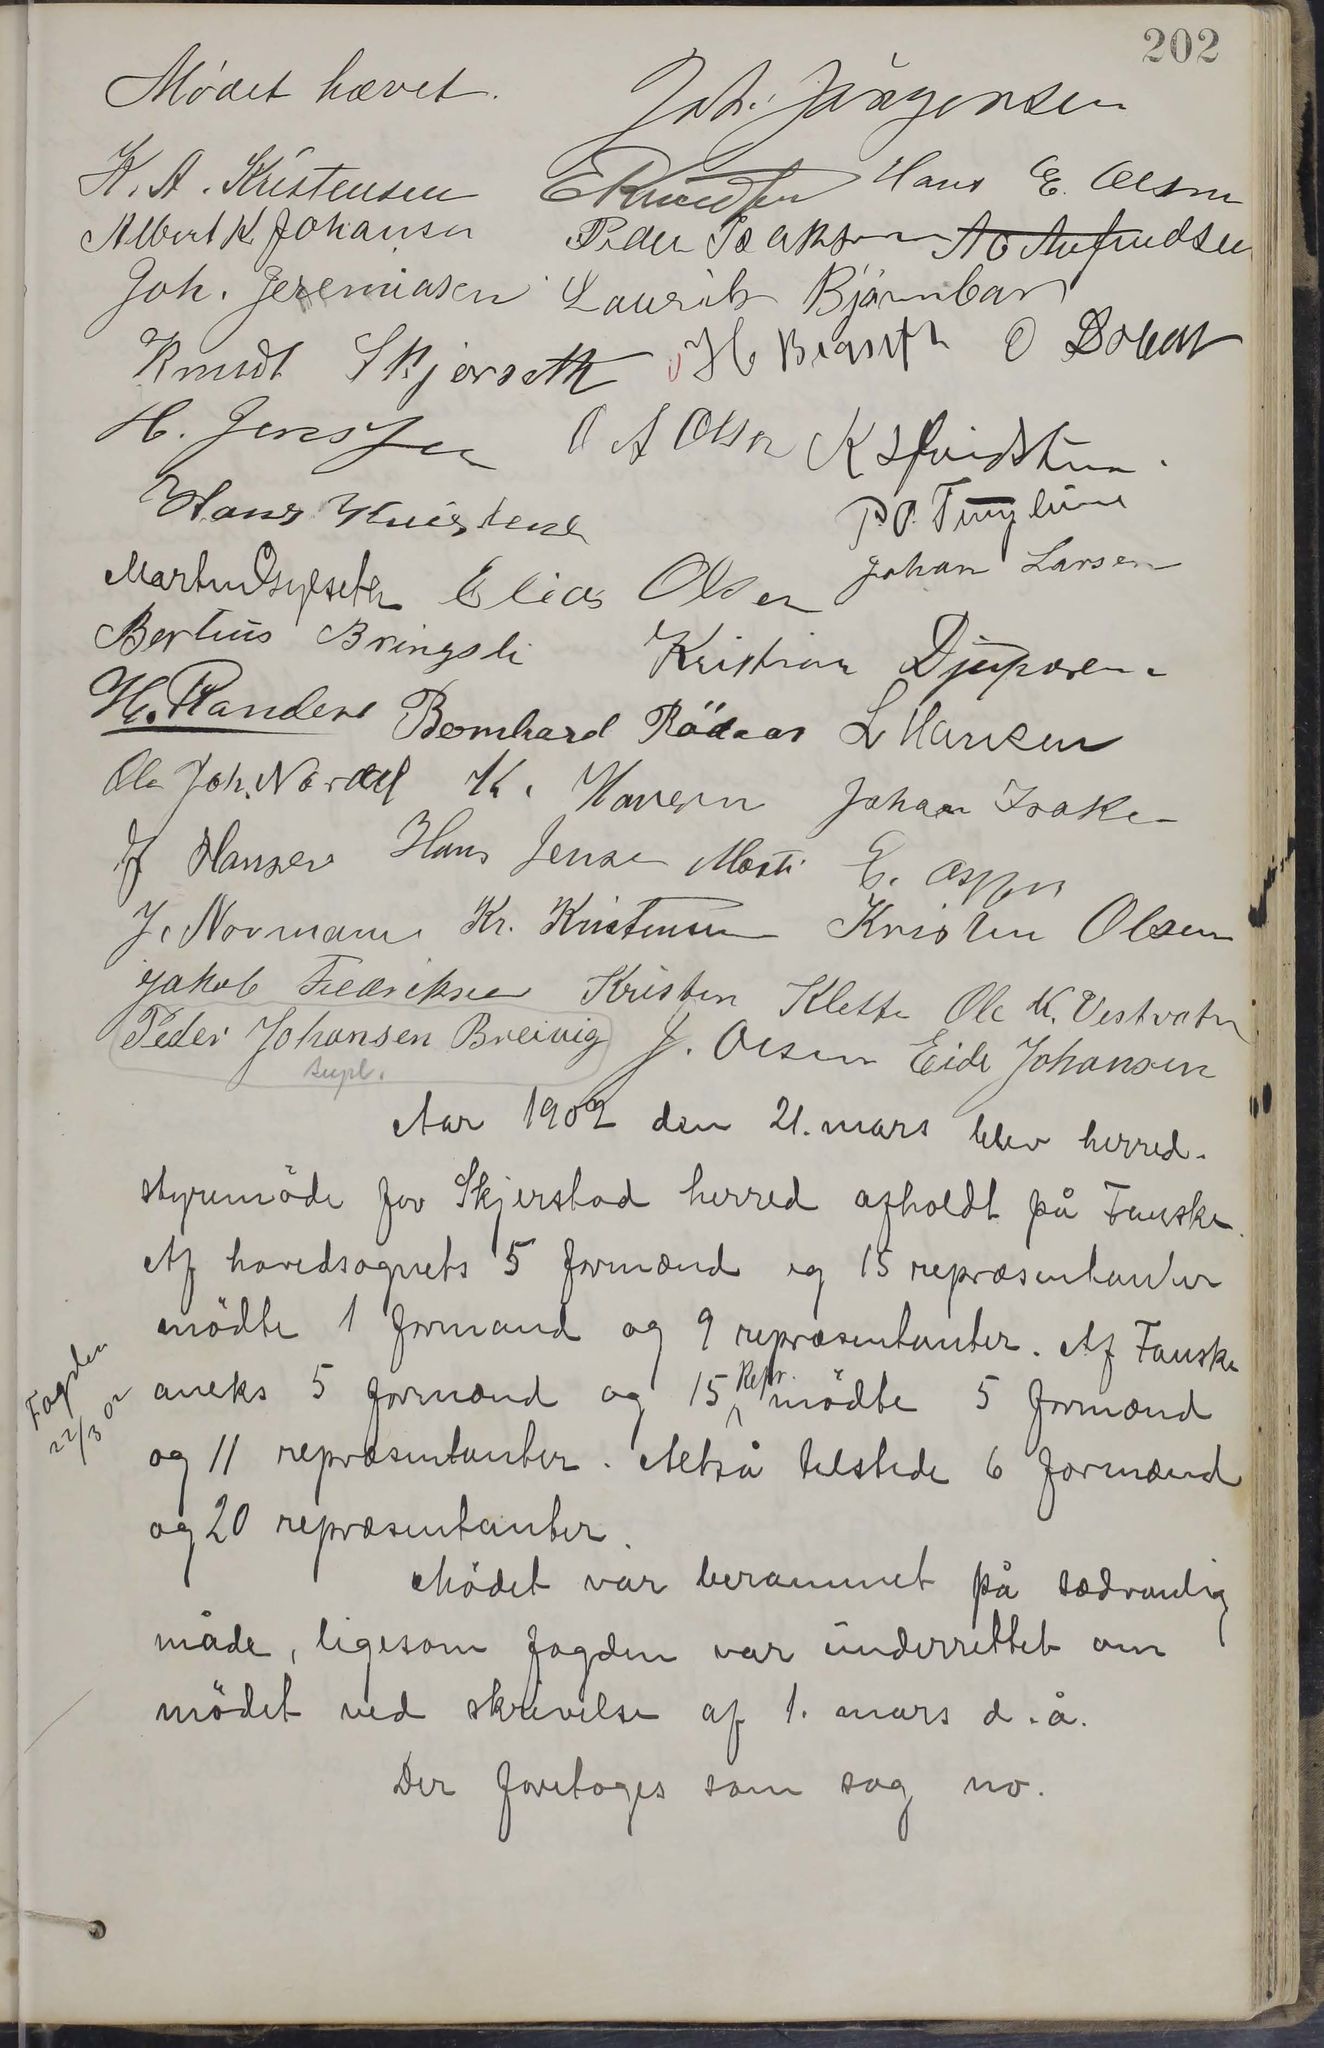 202
Mødet hævet. Joh. Jörgensen
K. A. Kristensen Hans E. Olsen
Albert K. Johansen Peder Isaksen
Joh. Jeremiasen Laurits Bjørnbar
Knudt Skjerseth
H. Jenssen O A Olsen
Hans Kristens P. O.
Martin Elias Olsen Johan Larsen
Bertius Bringsli Kristian Djuparen
H. Randers Bernhard Rödaas L Hansen
Ole Joh. Nordal K. Johan Isaks
Hansen Hans Jensen E.
J. Normann Kr. Kristensen Kristen Olsen
Jakob Fredriksen Kristen Klette Ole K. Vestvatn
Peder Johansen Breivig J. Olsen Eide Johansen
supl.
Aar 1902 den 21. mars blev herred-
styremöde for Skjerstad herred afholdt på Fauske.
Af hovedsognets 5 formænd og 15 repræsentanter
mödte 1 formand og 9 repræsentanter. Af Fauske
aneks 5 formænd og 15 Repr. mödte 5 formænd
Fogden
22/3 02
og 11 repræsentanter. Altså tilstede 6 formænd
og 20 repræsentanter.
Mödet var berammet på sædvanlig
måde, ligesom fogden var underrettet om
mödet ved skrivelse af 1. mars d. å.
Der foretoges som sag no.